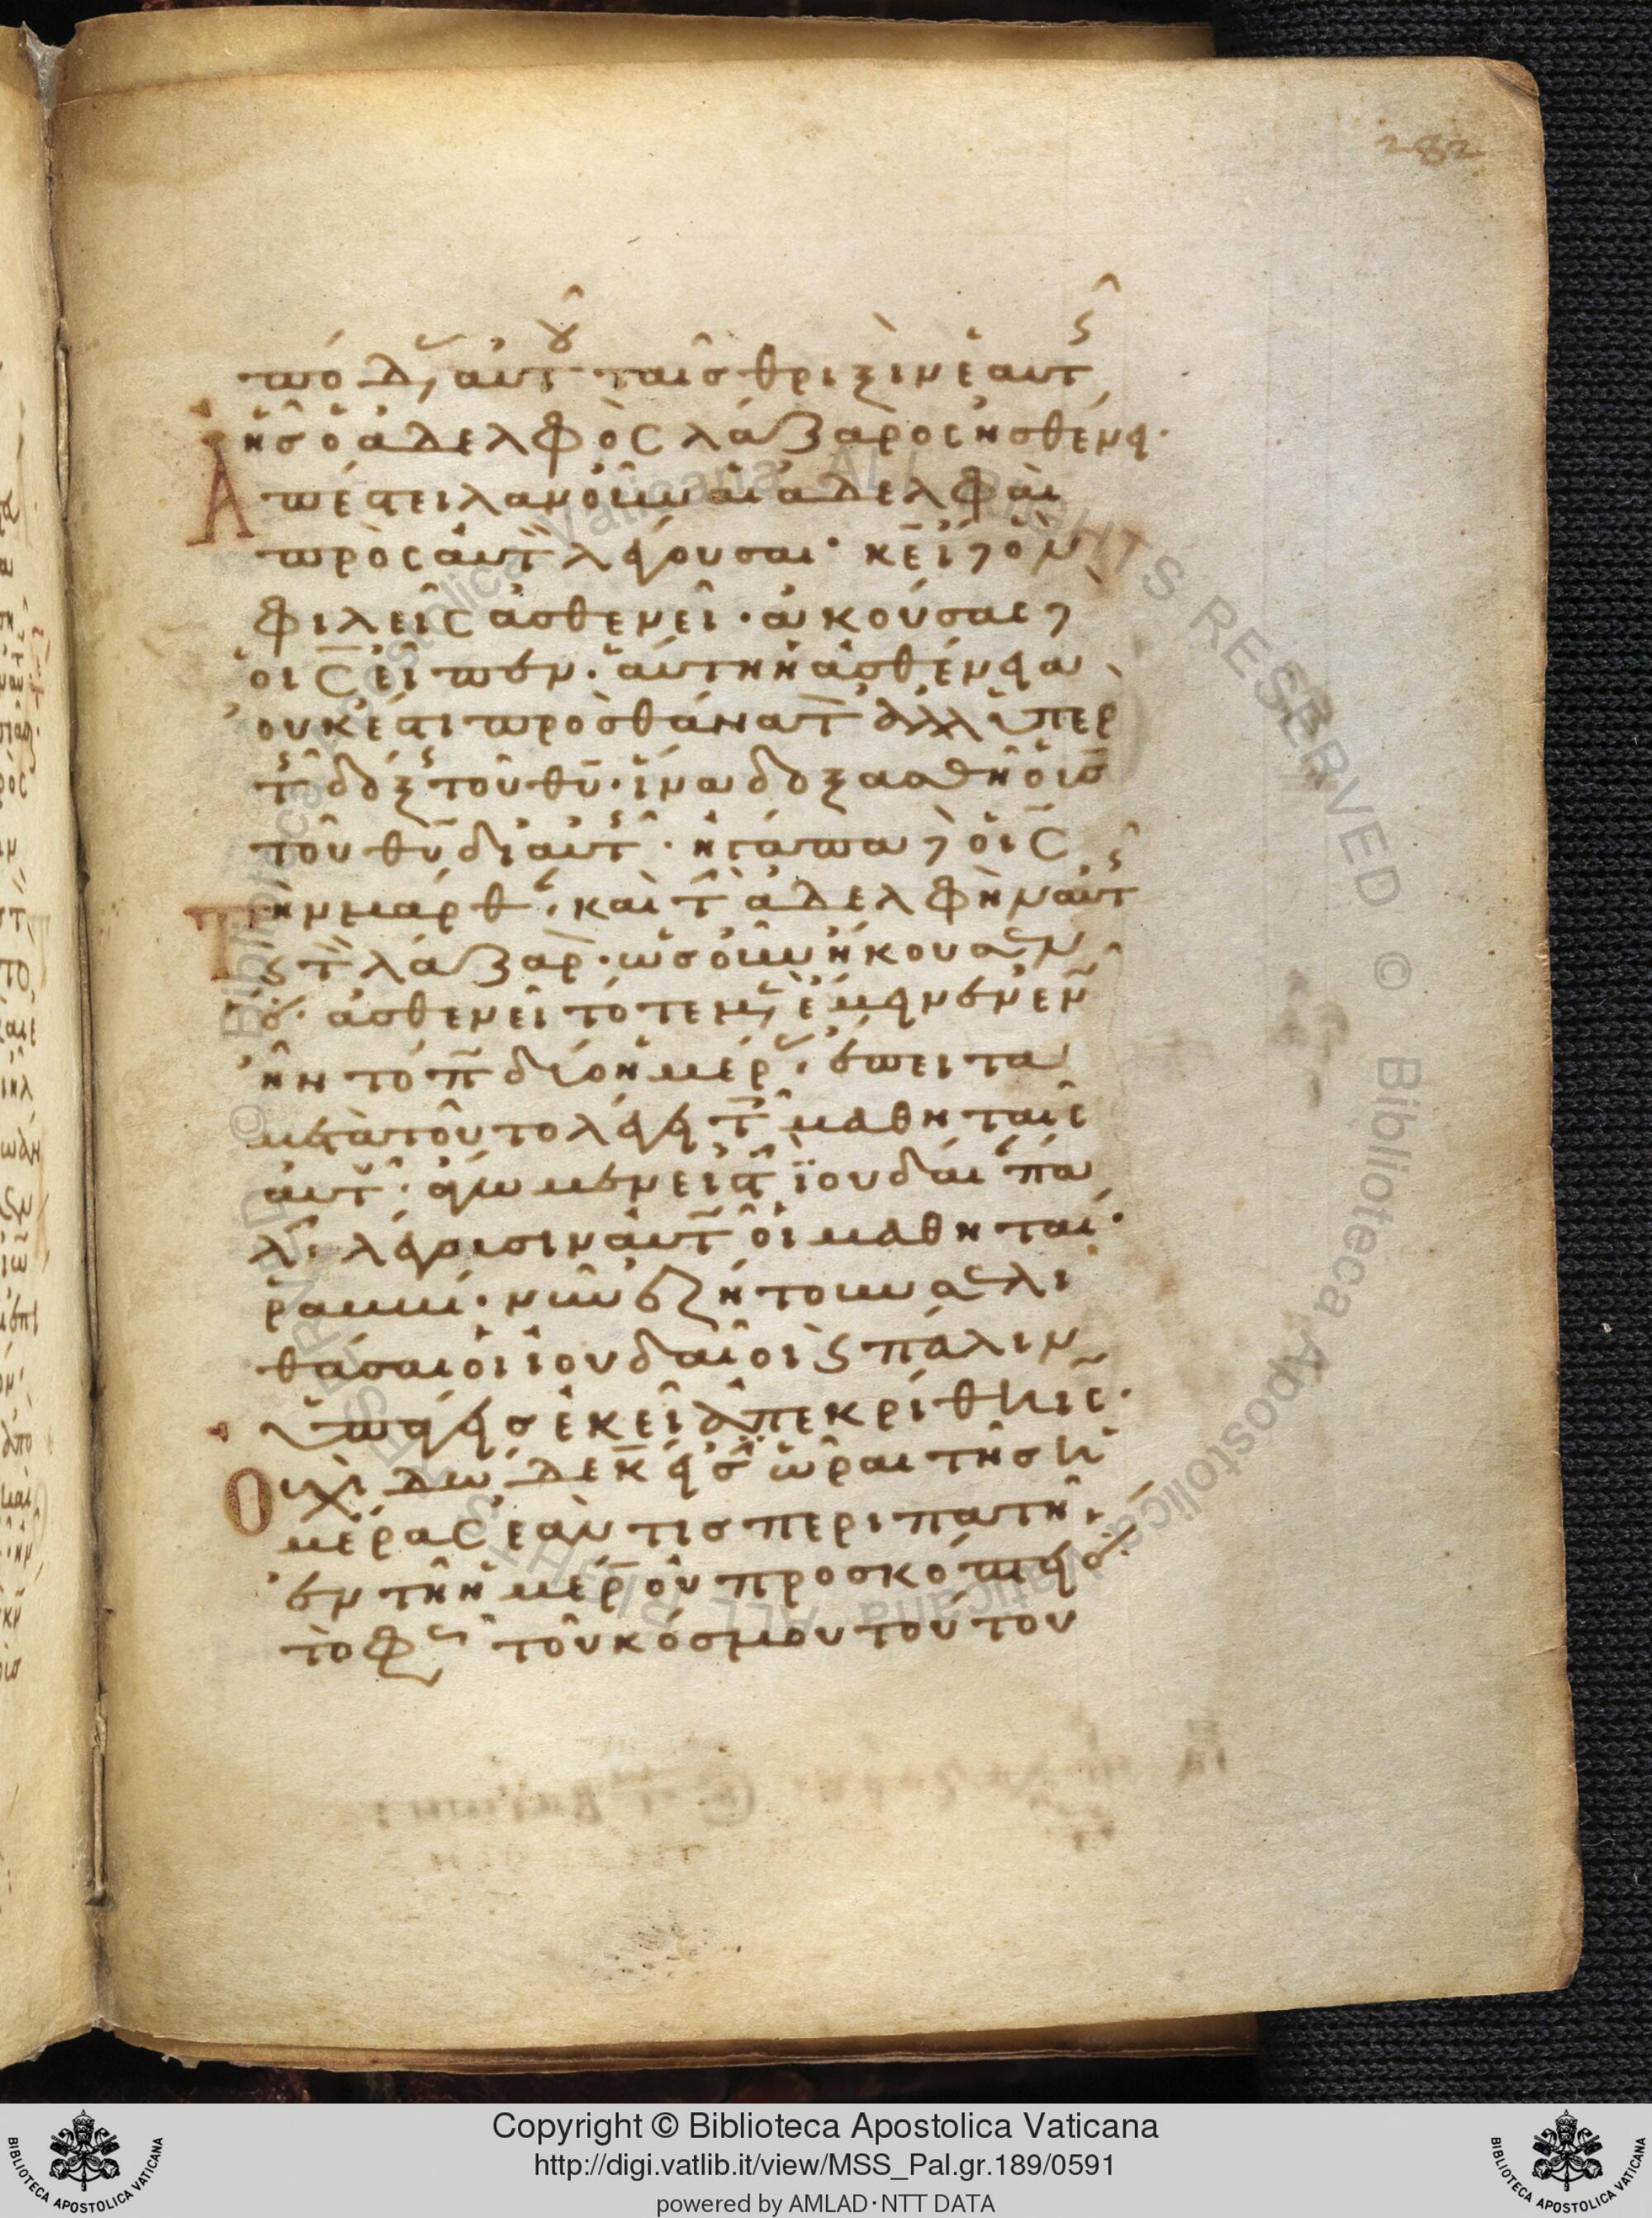 282
πόδ αὐτοῦ ταῖς θριξὶν ἑαυτῆς
ἧς ὁ ἀδελφὸς λάζαρος ἠσθένει·
Ἀπέστειλαν οὖν αἱ ἀδελφαὶ
πρὸς αὐτ λέγουσαι· κε ἴδε ὃν
φιλεῖς ἀσθενεῖ· ἀκούσας δὲ
ὁ ις εἶπεν· αὕτη ἡ ἀσθένεια
οὐκ ἔστι πρὸς θάνατ ἀλλ ὑπὲρ
τῆς δόξης τοῦ θυ· ἵνα δοξασθῆ ὁ υς
τοῦ θυ δι αὐτῆς· ἠγάπα δὲ ὁ ις
Τὴν μάρθ· καὶ τ ἀδελφὴν αὐτῆς
κ τ λάζαρ· ὡς οὖν ἤκουσεν
ὅτι ἀσθενεῖ τότε μ ἔμεινεν ἐν
ᾧ ἦν τόπ δύο ἡμέρας· ἔπειτα
μετὰ τοῦτο λέγει τ μαθηταῖς
αὐτ· ἄγωμεν εἰς τ ἰουδαί πά
λιν· λέγουσιν αὐτ οἱ μαθηταί·
ῥαββί· νῦν ἐζήτουν σε λι
θάσαι οἱ ἰουδαῖοι κ πάλιν
ὑπάγεις ἐκεῖ ἀπεκρίθη ις·
Οὐχὶ δώδεκ εἰσ ὧραι τῆς ἡ
μέρας ἐάν τις περιπατῆ
ἐν τῆ ἡμέρ οὐ προσκόπτει ὅτι
τὸ φῶς τοῦ κόσμου τούτου
Copyright © Biblioteca Apostolica Vaticana
http://digi.vatlib.it/view/MSS_Pal.gr.189/0591
powered by AMLAD·NTT DATA
BIBLIOTECA APOSTOLICA VATICANA
BIBLIOTECA APOSTOLICA VATICANA
© Biblioteca Apostolica Vaticana ALL RIGHTS RESERVED © Biblioteca Apostolica Vaticana ALL RIGHTS RESERVED